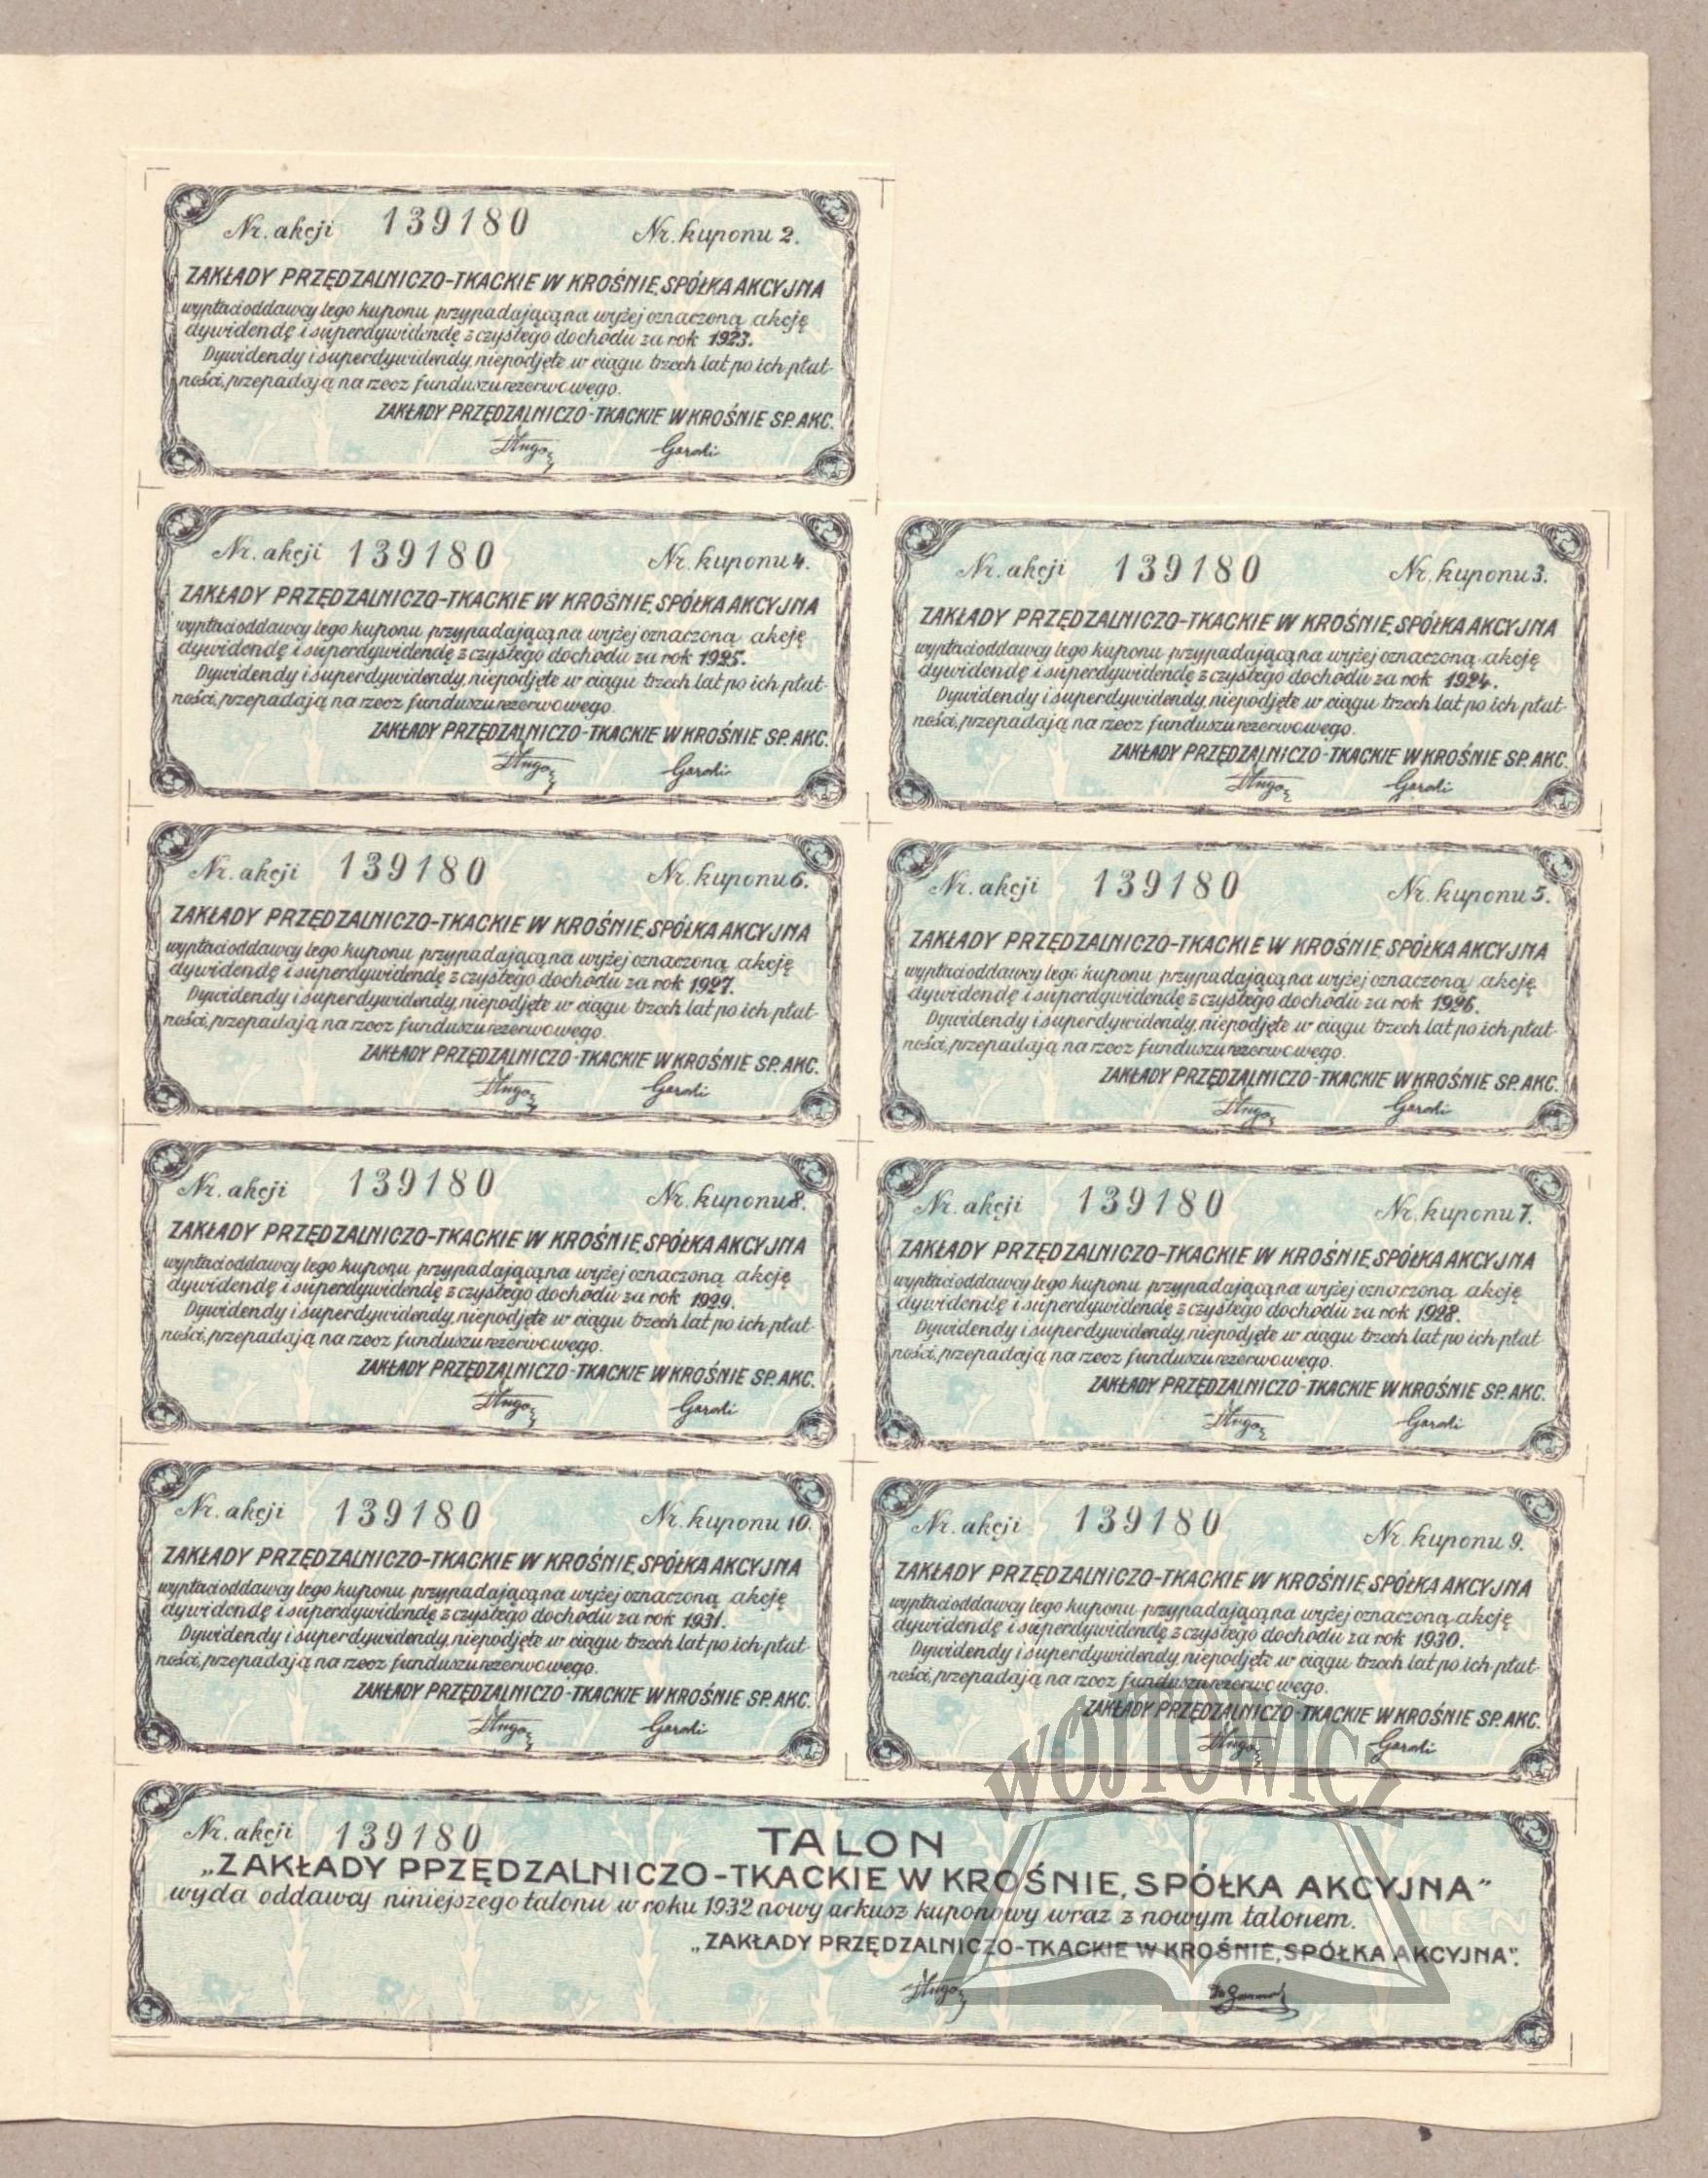 Nr. akcji 139180 Nr. kuponu 2.
ZAKŁADY PRZĘDZALNICZO-TKACKIE W KROŚNIE, SPÓŁKA AKCYJNA
wypłaci oddawcy tego kuponu przypadającą na wyżej oznaczoną akcję
dywidendę i superdywidendę z czystego dochodu za rok 1923.
Dywidendy i superdywidendy, niepodjęte w ciągu trzech lat po ich płat-
ności, przepadają na rzecz funduszu rezerwowego.
ZAKŁADY PRZĘDZALNICZO-TKACKIE W KROŚNIE SP. AKC.
Nr. akcji 139180 Nr. kuponu 4.
ZAKŁADY PRZĘDZALNICZO-TKACKIE W KROŚNIE, SPÓŁKA AKCYJNA
wypłaci oddawcy tego kuponu przypadającą na wyżej oznaczoną akcję
dywidendę i superdywidendę z czystego dochodu za rok 1925.
Dywidendy i superdywidendy, niepodjęte w ciągu trzech lat po ich płat-
ności, przepadają na rzecz funduszu rezerwowego.
ZAKŁADY PRZĘDZALNICZO-TKACKIE W KROŚNIE SP. AKC.
Nr. akcji 139180 Nr. kuponu 3.
ZAKŁADY PRZĘDZALNICZO-TKACKIE W KROŚNIE, SPÓŁKA AKCYJNA
wypłaci oddawcy tego kuponu przypadającą na wyżej oznaczoną akcję
dywidendę i superdywidendę z czystego dochodu za rok 1924.
Dywidendy i superdywidendy, niepodjęte w ciągu trzech lat po ich płat-
ności, przepadają na rzecz funduszu rezerwowego.
ZAKŁADY PRZĘDZALNICZO-TKACKIE W KROŚNIE SP. AKC.
Nr. akcji 139180 Nr. kuponu 6.
ZAKŁADY PRZĘDZALNICZO-TKACKIE W KROŚNIE, SPÓŁKA AKCYJNA
wypłaci oddawcy tego kuponu przypadającą na wyżej oznaczoną akcję
dywidendę i superdywidendę z czystego dochodu za rok 1927.
Dywidendy i superdywidendy, niepodjęte w ciągu trzech lat po ich płat-
ności, przepadają na rzecz funduszu rezerwowego.
ZAKŁADY PRZĘDZALNICZO-TKACKIE W KROŚNIE SP. AKC.
Nr. akcji 139180 Nr. kuponu 5.
ZAKŁADY PRZĘDZALNICZO-TKACKIE W KROŚNIE, SPÓŁKA AKCYJNA
wypłaci oddawcy tego kuponu przypadającą na wyżej oznaczoną akcję
dywidendę i superdywidendę z czystego dochodu za rok 1926.
Dywidendy i superdywidendy, niepodjęte w ciągu trzech lat po ich płat-
ności, przepadają na rzecz funduszu rezerwowego.
ZAKŁADY PRZĘDZALNICZO-TKACKIE W KROŚNIE SP. AKC.
Nr. akcji 139180 Nr. kuponu 8.
ZAKŁADY PRZĘDZALNICZO-TKACKIE W KROŚNIE, SPÓŁKA AKCYJNA
wypłaci oddawcy tego kuponu przypadającą na wyżej oznaczoną akcję
dywidendę i superdywidendę z czystego dochodu za rok 1929.
Dywidendy i superdywidendy, niepodjęte w ciągu trzech lat po ich płat-
ności, przepadają na rzecz funduszu rezerwowego.
ZAKŁADY PRZĘDZALNICZO-TKACKIE W KROŚNIE SP. AKC.
Nr. akcji 139180 Nr. kuponu 7.
ZAKŁADY PRZĘDZALNICZO-TKACKIE W KROŚNIE, SPÓŁKA AKCYJNA
wypłaci oddawcy tego kuponu przypadającą na wyżej oznaczoną akcję
dywidendę i superdywidendę z czystego dochodu za rok 1928.
Dywidendy i superdywidendy, niepodjęte w ciągu trzech lat po ich płat-
ności, przepadają na rzecz funduszu rezerwowego.
ZAKŁADY PRZĘDZALNICZO-TKACKIE W KROŚNIE SP. AKC.
Nr. akcji 139180 Nr. kuponu 10.
ZAKŁADY PRZĘDZALNICZO-TKACKIE W KROŚNIE, SPÓŁKA AKCYJNA
wypłaci oddawcy tego kuponu przypadającą na wyżej oznaczoną akcję
dywidendę i superdywidendę z czystego dochodu za rok 1931.
Dywidendy i superdywidendy, niepodjęte w ciągu trzech lat po ich płat-
ności, przepadają na rzecz funduszu rezerwowego.
ZAKŁADY PRZĘDZALNICZO-TKACKIE W KROŚNIE SP. AKC.
Nr. akcji 139180 Nr. kuponu 9.
ZAKŁADY PRZĘDZALNICZO-TKACKIE W KROŚNIE, SPÓŁKA AKCYJNA
wypłaci oddawcy tego kuponu przypadającą na wyżej oznaczoną akcję
dywidendę i superdywidendę z czystego dochodu za rok 1930.
Dywidendy i superdywidendy, niepodjęte w ciągu trzech lat po ich płat-
ności, przepadają na rzecz funduszu rezerwowego.
ZAKŁADY PRZĘDZALNICZO-TKACKIE W KROŚNIE SP. AKC.
WÓJTOWICZ
Nr. akcji 139180 TALON
„ZAKŁADY PPZĘDZALNICZO-TKACKIE W KROŚNIE, SPÓŁKA AKCYJNA"
wyda oddawcy niniejszego talonu w roku 1932 nowy arkusz kuponowy wraz z nowym talonem.
„ZAKŁADY PRZĘDZALNICZO-TKACKIE W KROŚNIE, SPÓŁKA AKCYJNA".